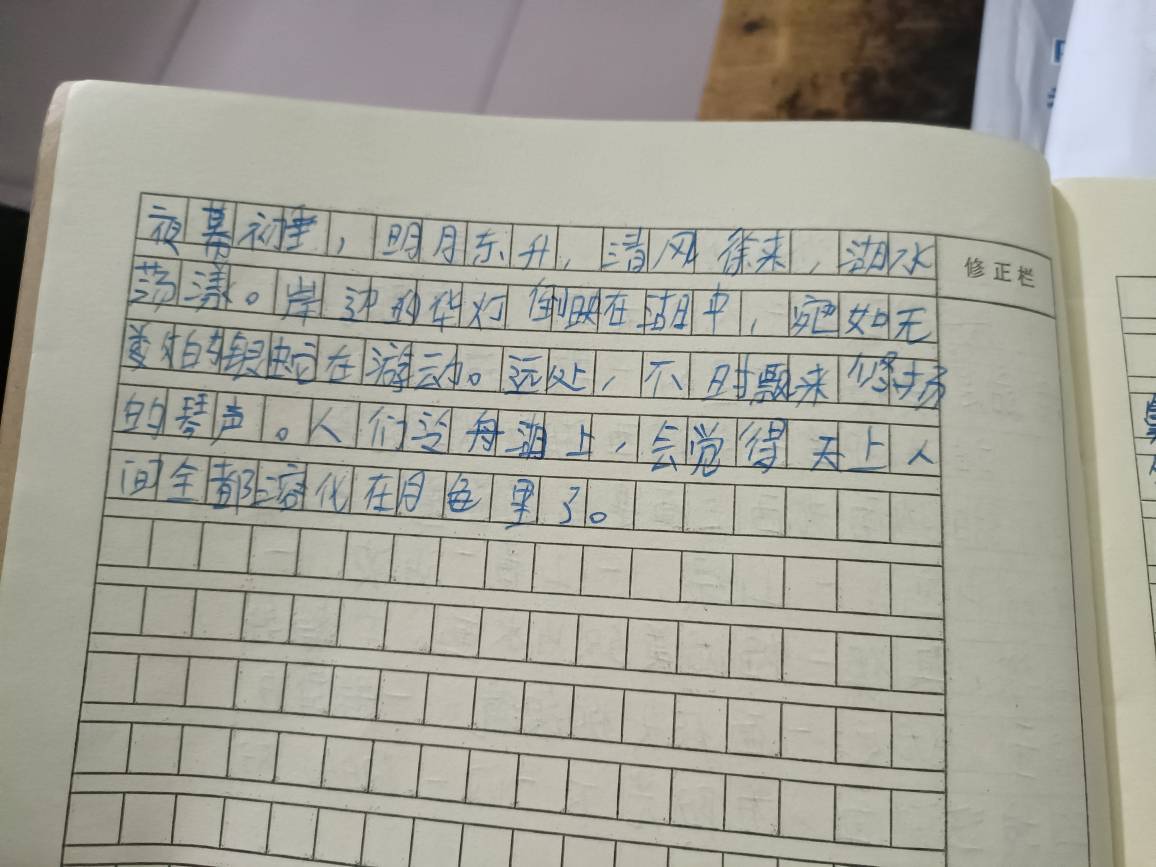 夜幕初垂，明月东升，清风徐来，湖水
修正栏
荡漾。岸边的华灯倒映在湖中，宛如无
数的银蛇在游动。远处，不时飘来悠扬
的琴声。人们泛舟湖上，会觉得天上人
间全都溶化在月色里了。